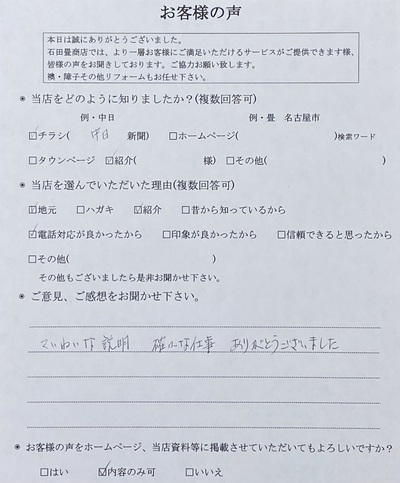 お客様の声
本日は誠にありがとうございました。
石田畳商店では、より一層お客様にご満足いただけるサービスがご提供できます様、
皆様の声をお聞きしております。ご協力お願い致します。
襖・障子その他リフォームもお任せ下さい。
◉ 当店をどのように知りましたか？(複数回答可)
例・中日 例・畳 名古屋市
☑チラシ( 中日 新聞) □ホームページ( )検索ワード
□タウンページ ☑紹介( 様) □その他( )
◉ 当店を選んでいただいた理由(複数回答可)
☑地元 □ハガキ ☑紹介 □昔から知っているから
☑電話対応が良かったから □印象が良かったから □信頼できると思ったから
□その他( )
その他もございましたら是非お聞かせ下さい。
◉ ご意見、ご感想をお聞かせ下さい。
ていねいな説明 確かな仕事 ありがとうございました
◉ お客様の声をホームページ、当店資料等に掲載させていただいてもよろしいですか？
□はい ☑内容のみ可 □いいえ